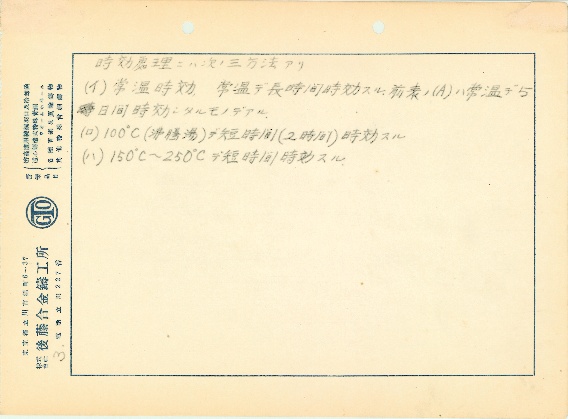 時効処理ニハ次ノ三方法アリ
(イ) 常温時効 常温デ長時間時効スル. 前表ノ(A)ハ常温デ5
日間時効シタルモノデアル.
(ロ) 100℃(沸騰湯)デ短時間(2時間)時効スル
(ハ) 150℃〜250℃デ短時間時効スル.
GTO
後藤合金鑄工所
電話立川227番
3.